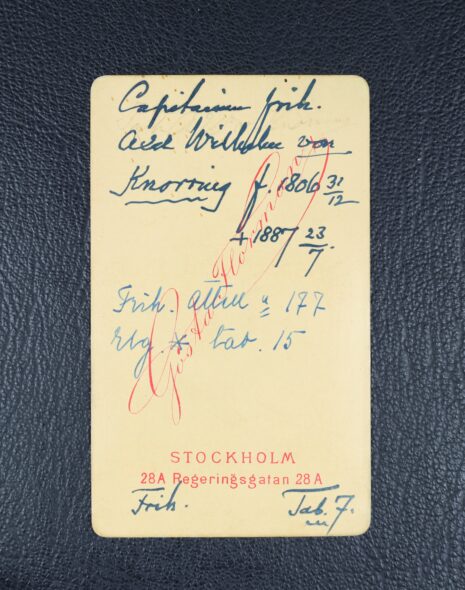 Capitainen frih.
Axel Wilhelm von
Knorring f. 1806 31/12
+ 1887 23/7
Frih. ätten n 177
Rbg. * tab. 15
Gösta Florman
STOCKHOLM
28A Regeringsgatan 28A
Frih. Tab. 7.